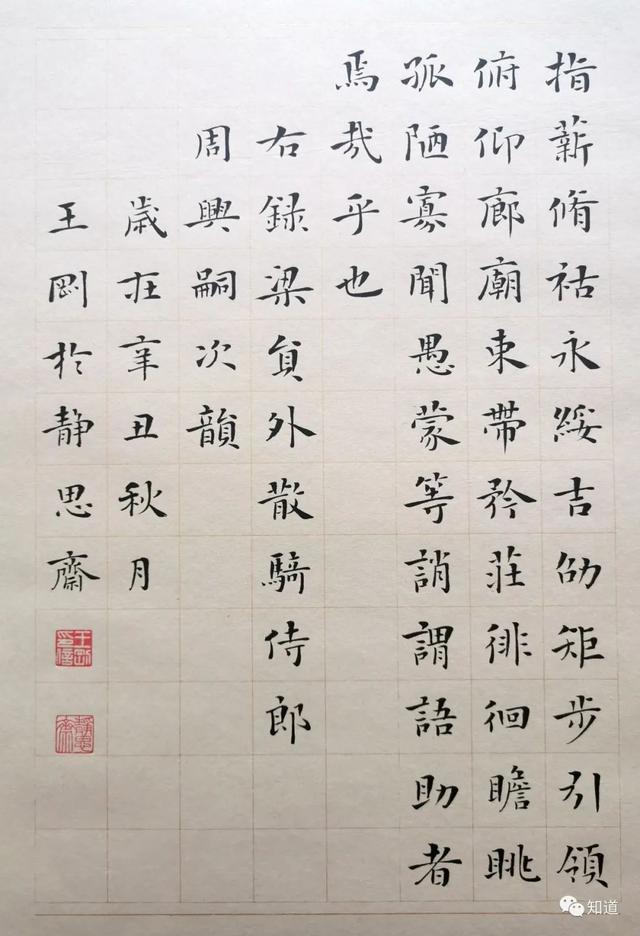 指薪脩祜永綏吉劭矩步引領
俯仰廊廟束帶矜莊徘徊瞻眺
孤陋寡聞愚蒙等誚謂語助者
焉哉乎也
右録梁員外散騎侍郎
周興嗣次韻
歲在辛丑秋月
王剛於静思齋
王剛印信
知道